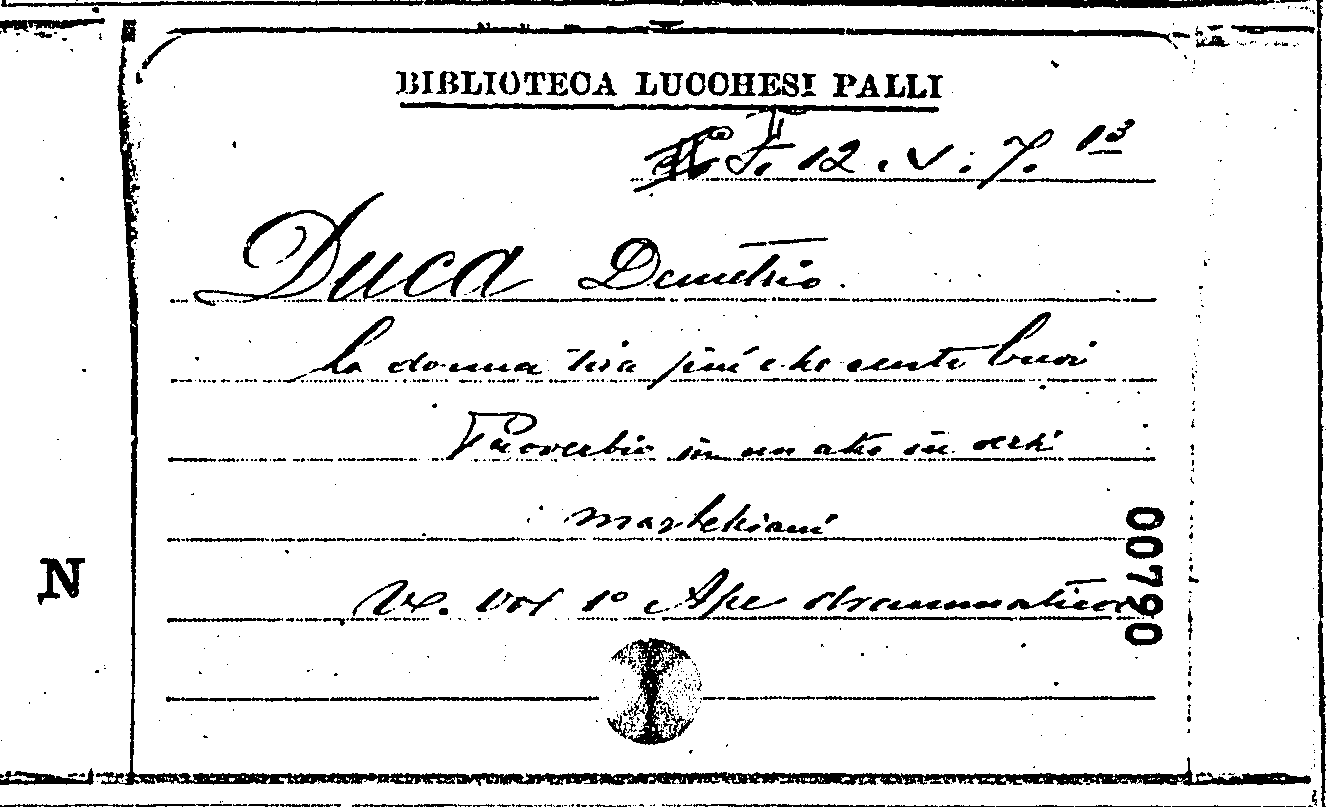 BIBLIOTECA LUCCHESI PALLI
F. 12. V. 7. 13
Duca Demetrio.
La donna tira più che cento buoi
Proverbio in un atto in versi
martelliani
Ve. Vol 1º Ape drammatica
00790
N